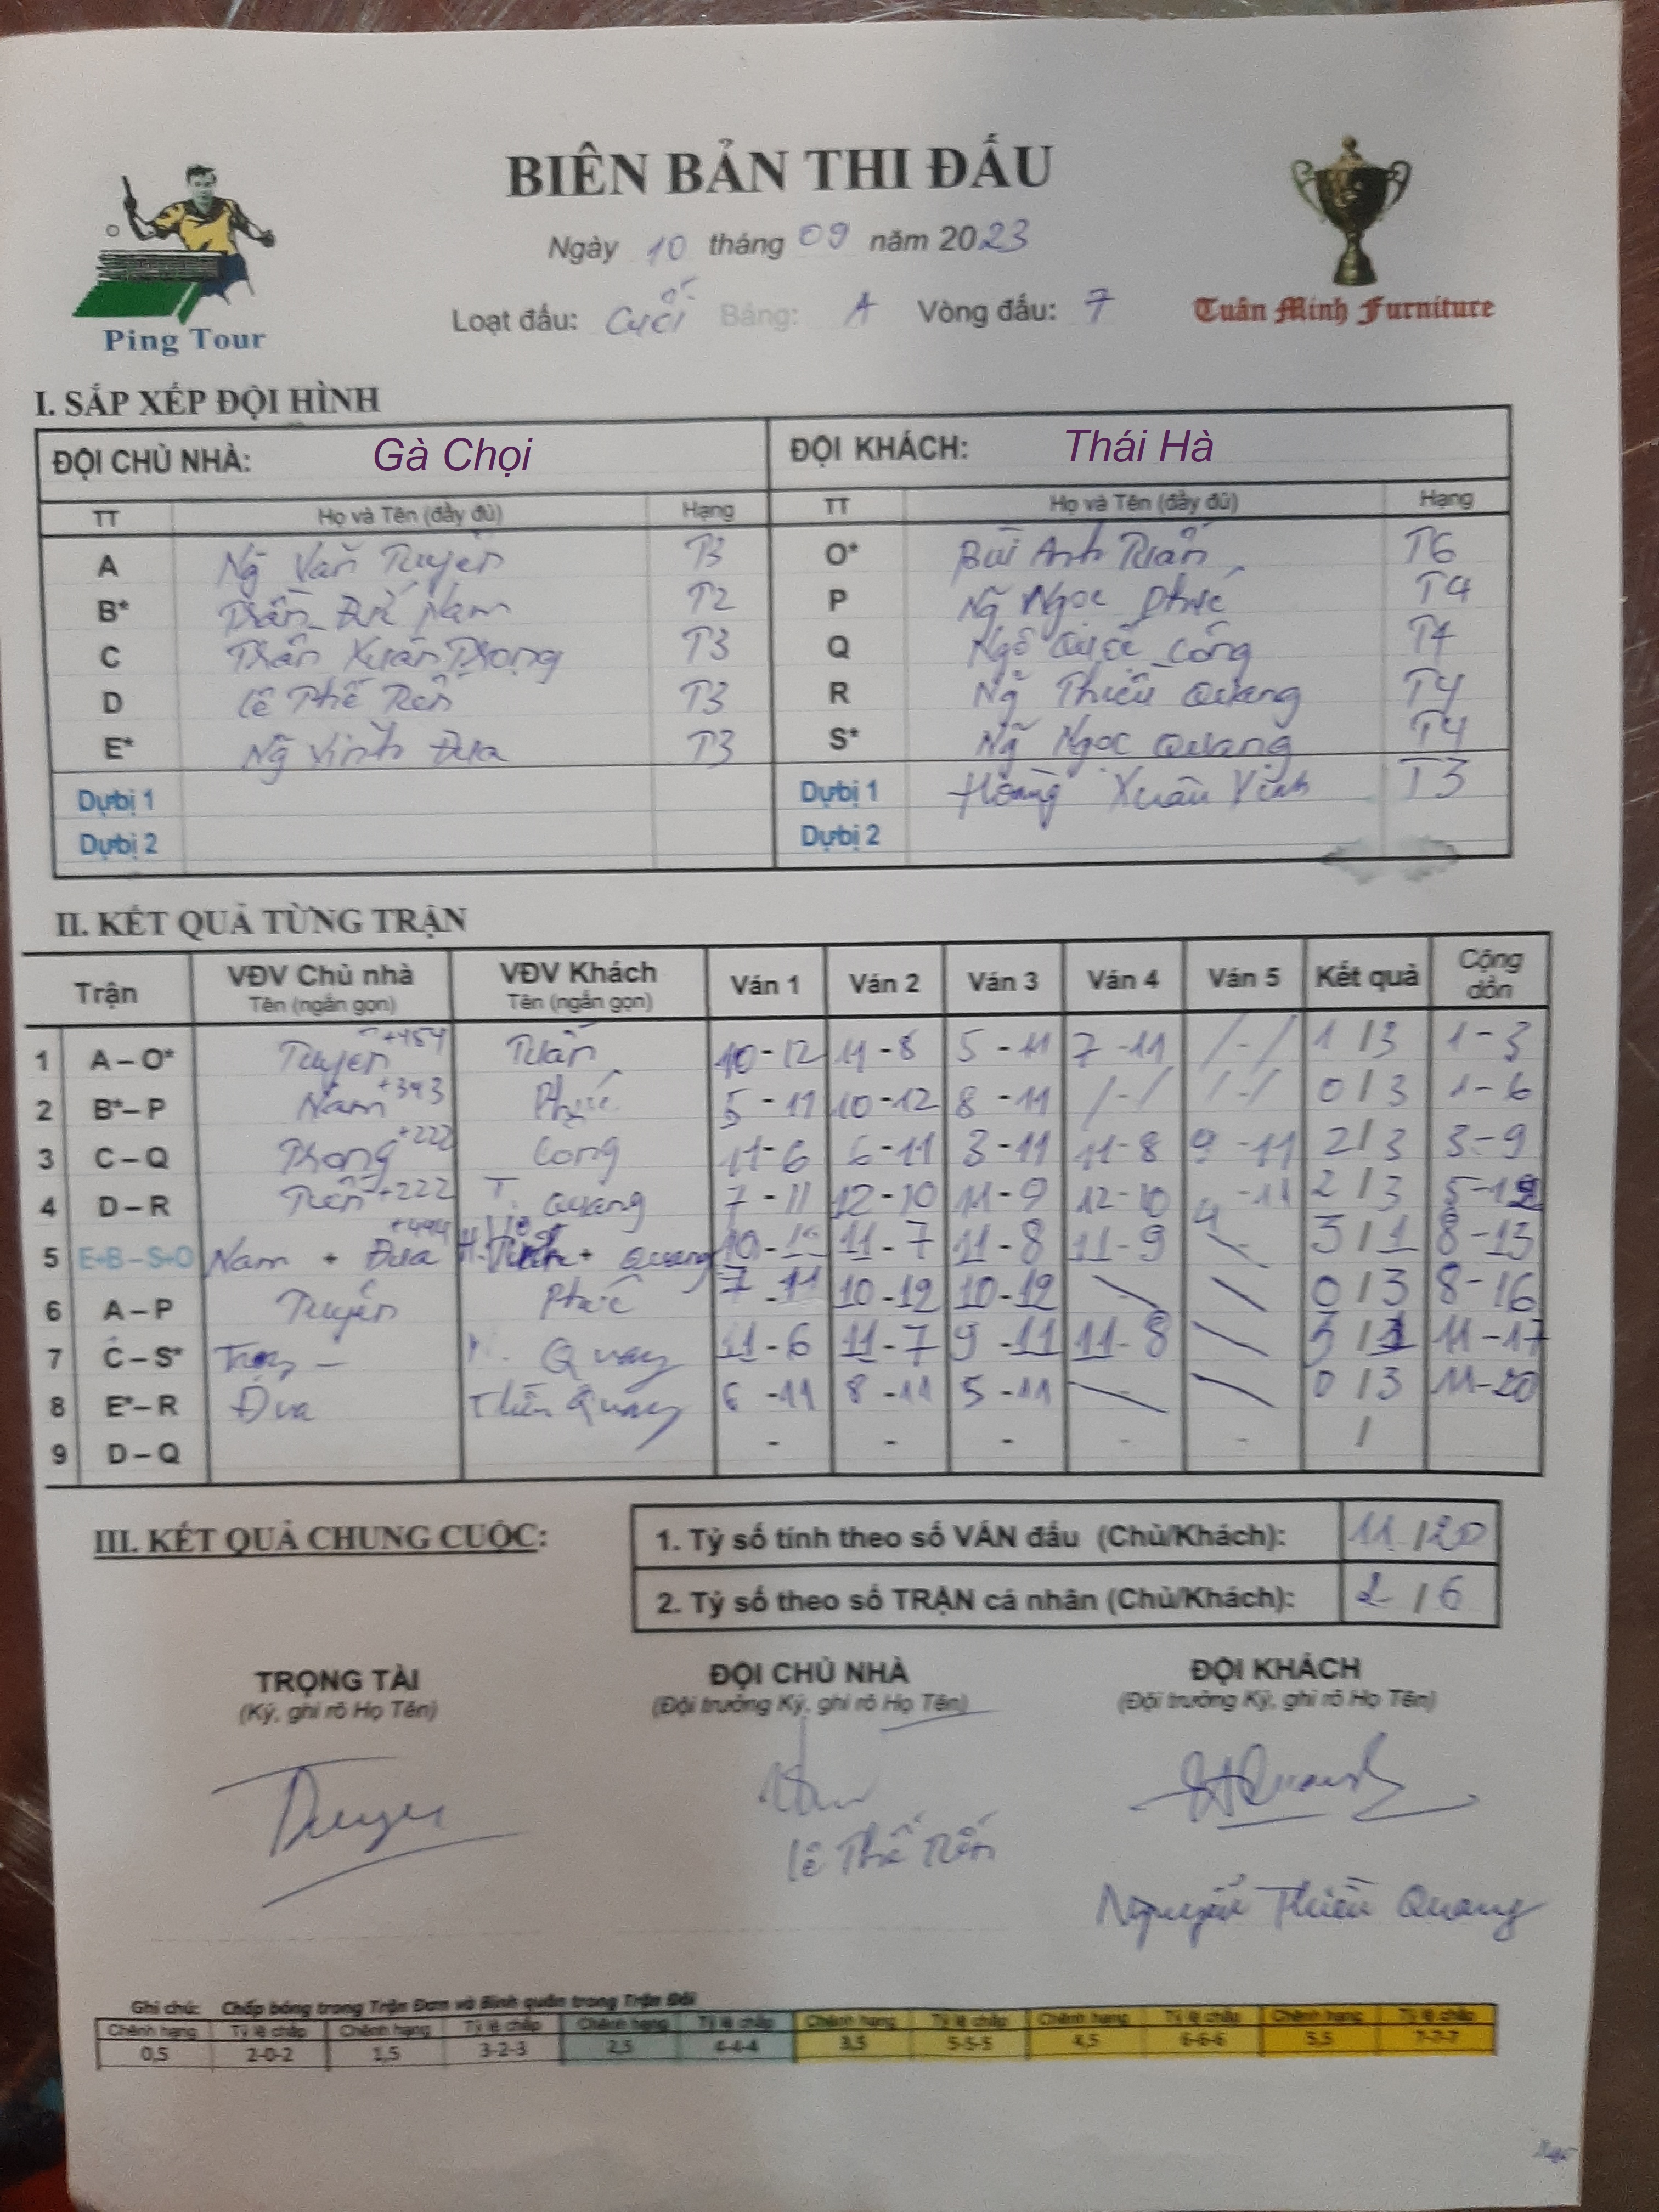 BIÊN BẢN THI ĐẤU
Ngày 10 tháng 09 năm 2023
Loạt đấu: Cuối Bảng: A Vòng đấu: 7
Ping Tour
Tuân Minh Furniture
I. SẮP XẾP ĐỘI HÌNH
ĐỘI CHỦ NHÀ: Gà Chọi ĐỘI KHÁCH: Thái Hà
TT Họ và Tên (đầy đủ) Hạng TT Họ và Tên (đầy đủ) Hạng
A Ng̃ Văn Tuyến T3 O* Bùi Anh Tuấn T6
B* Trần Đức Nam T2 P Ng̃ Ngọc Phúc T4
C Trần Xuân Trọng T3 Q Ngô Quốc Công T4
D Lê Thế Tiến T3 R Ng̃ Thiều Quang T4
E* Ng̃ Vinh Đua T3 S* Ng̃ Ngọc Quang T4
Dự bị 1 Dự bị 1 Hoàng Xuân Vinh T3
Dự bị 2 Dự bị 2
II. KẾT QUẢ TỪNG TRẬN
Trận VĐV Chủ nhà Tên (ngắn gọn) VĐV Khách Tên (ngắn gọn) Ván 1 Ván 2 Ván 3 Ván 4 Ván 5 Kết quả Cộng dồn
1 A – O* Tuyến +454 Tuấn 10-12 11-8 5-11 7-11 /-/ 1/3 1-3
2 B* – P Nam +343 Phúc 5-11 10-12 8-11 /-/ /-/ 0/3 1-6
3 C – Q Trọng +222 Công 11-6 6-11 3-11 11-8 9-11 2/3 3-9
4 D – R Tiến +222 T. Quang 7-11 12-10 11-9 12-10 4-11 2/3 5-12
5 E+B – S+O Nam + Đua +444 + Quang 11-7 11-8 11-9 3/1 8-13
6 A – P Tuyến Phúc 7-11 10-12 10-12 0/3 8-16
7 C – S* Trọng N. Quang 11-6 11-7 9-11 11-8 3/1 11-17
8 E* – R Đua Thiều Quang 6-11 8-11 5-11 0/3 11-20
9 D – Q - - - - - /
III. KẾT QUẢ CHUNG CUỘC:
1. Tỷ số tính theo số VÁN đấu (Chủ/Khách): 11/20
2. Tỷ số theo số TRẬN cá nhân (Chủ/Khách): 2/6
TRỌNG TÀI ĐỘI CHỦ NHÀ ĐỘI KHÁCH
(Ký, ghi rõ Họ Tên) (Đội trưởng Ký, ghi rõ Họ Tên) (Đội trưởng Ký, ghi rõ Họ Tên)
Lê Thế Tiến
Nguyễn Thiều Quang
Ghi chú: Chấp bóng trong Trận Đơn và Bình quân trong Trận Đôi
Chênh hạng Tỷ lệ chấp Chênh hạng Tỷ lệ chấp Chênh hạng Tỷ lệ chấp Chênh hạng Tỷ lệ chấp Chênh hạng Tỷ lệ chấp Chênh hạng Tỷ lệ chấp
0,5 2-0-2 1,5 3-2-3 2,5 4-4-4 3,5 5-5-5 4,5 6-6-6 5,5 7-7-7